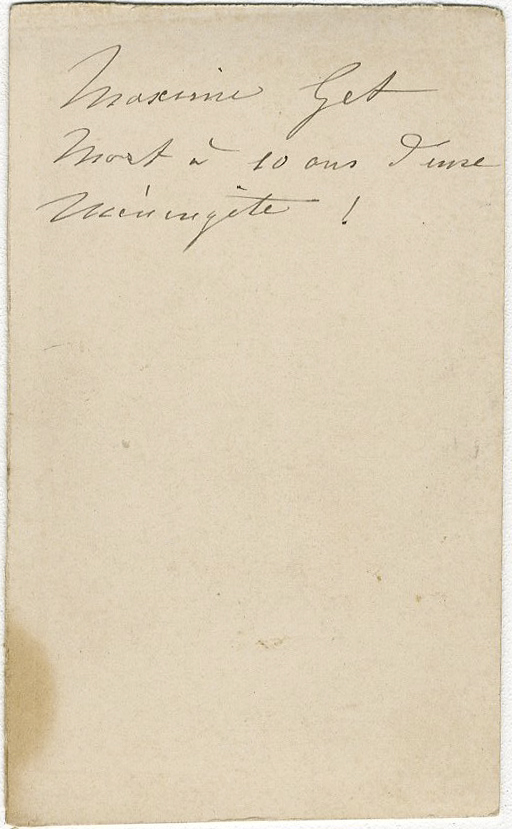 Maxime Get
Mort à 10 ans d'une
Méningite !